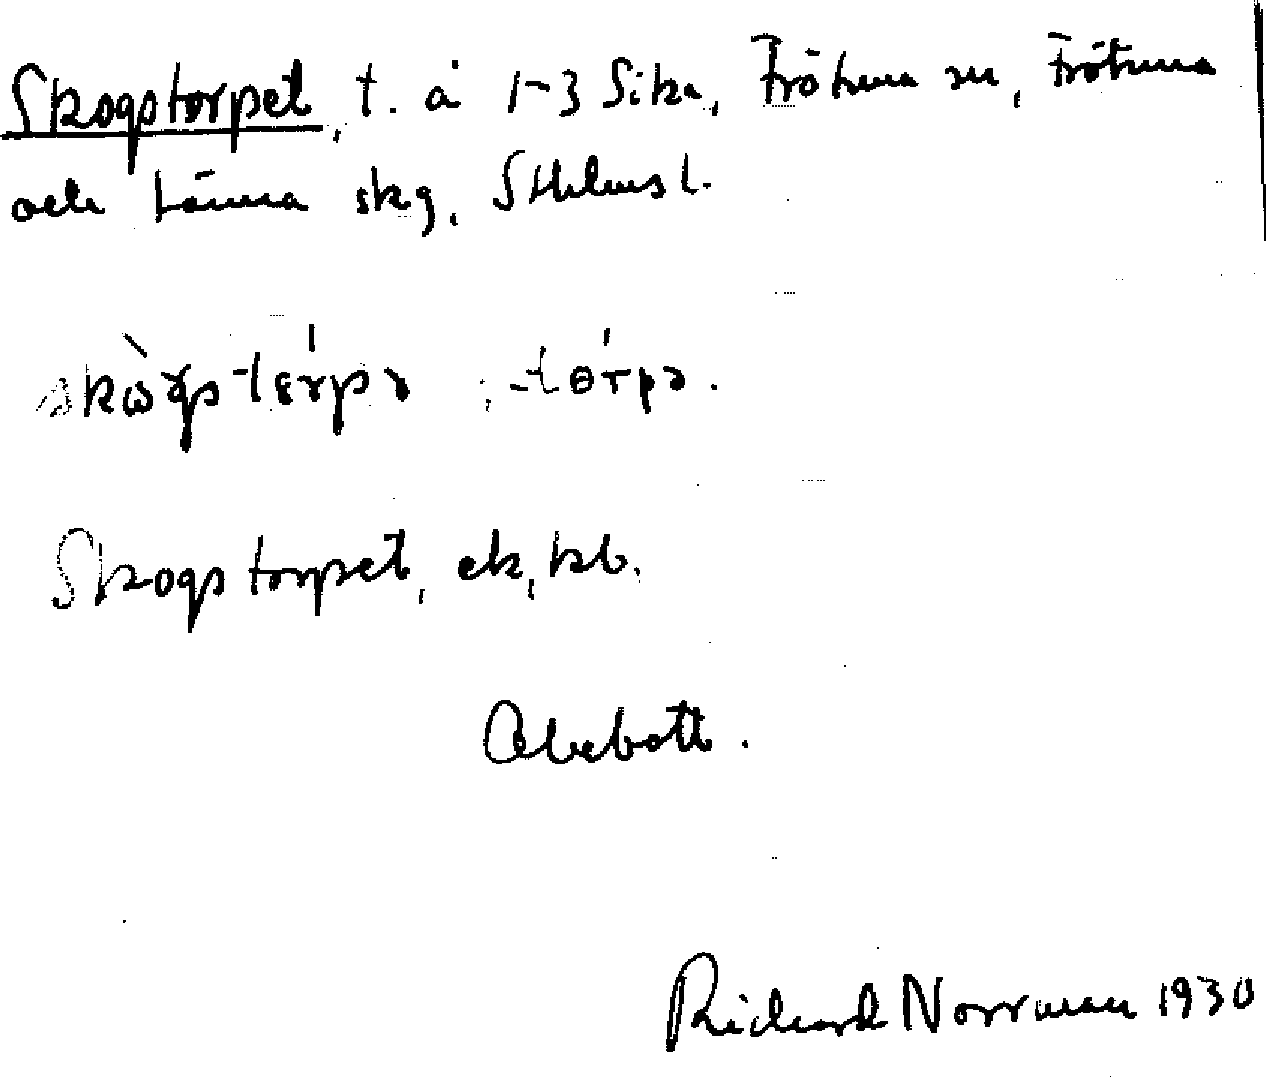 Skogstorpet, t. å 1-3 Sika, Frötuna sn, Frötuna
och Länna skg, Sthlms l.
skògs-tɛ́rpə ; -tɵ́rpə.
Skogstorpet, ek, kb.
Obebott.
Richard Norrman 1930